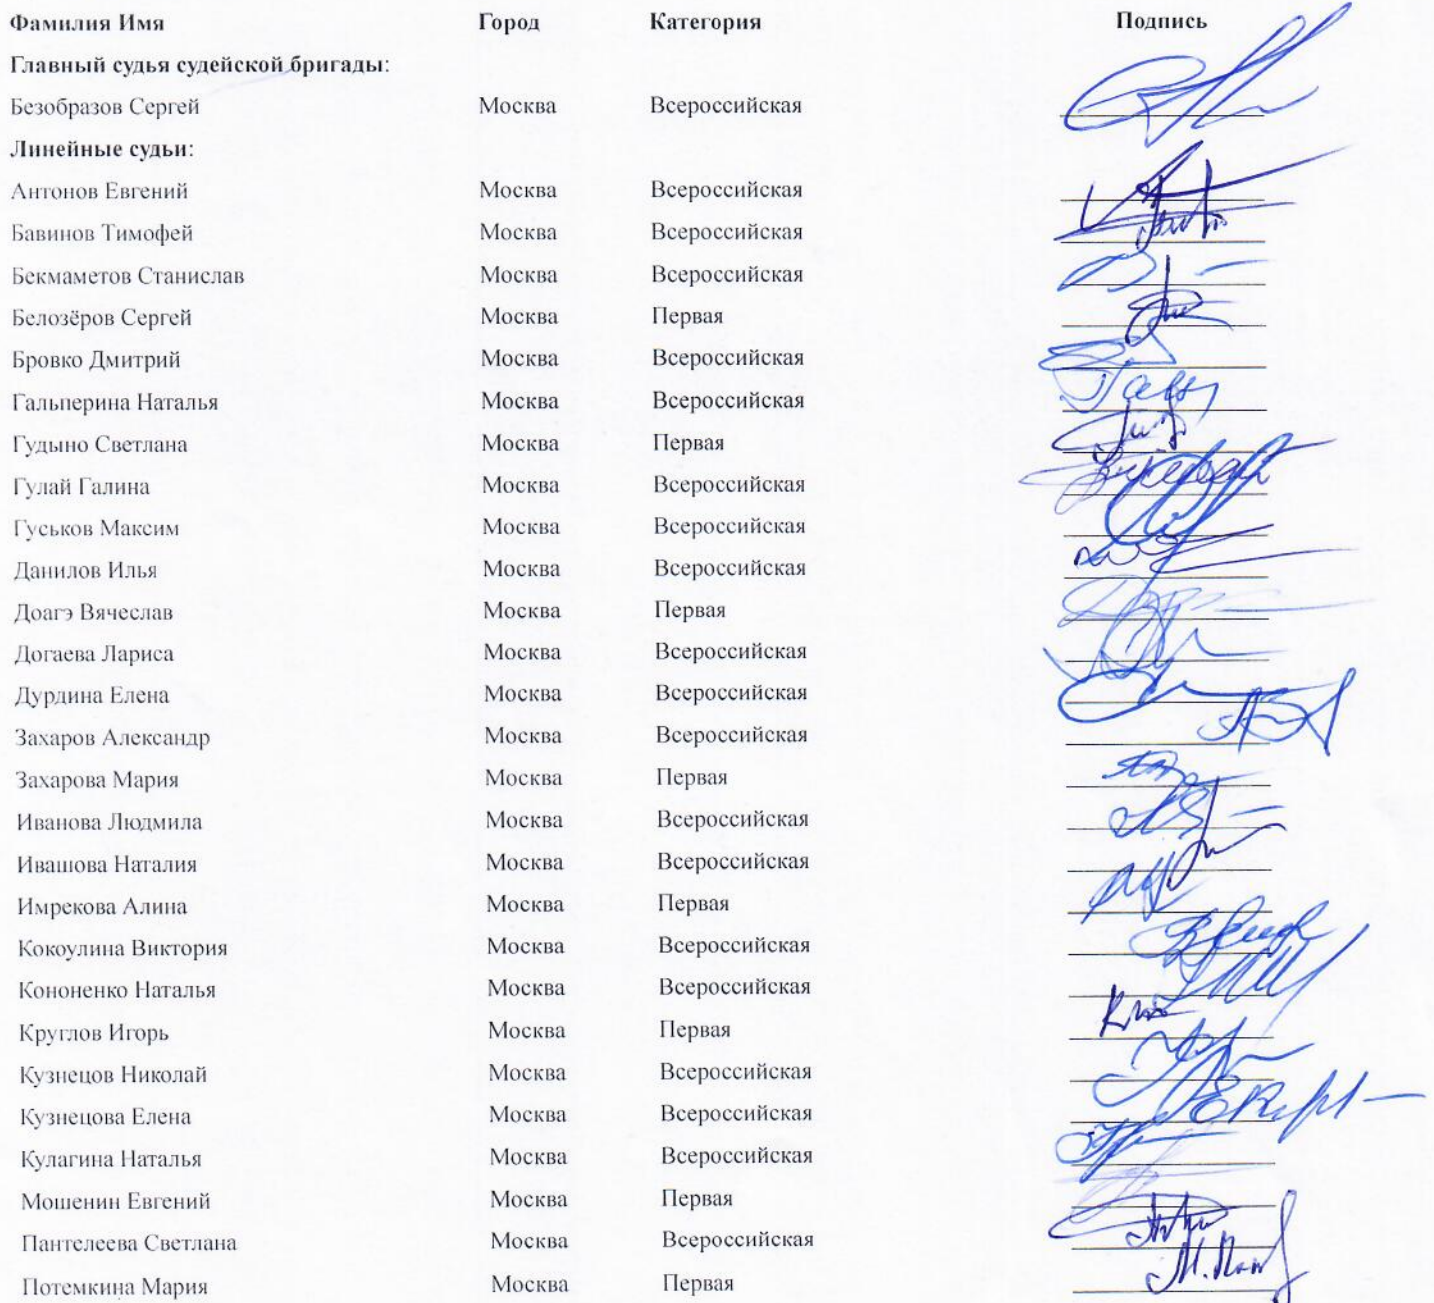 Фамилия Имя Город Категория Подпись
Главный судья судейской бригады:
Безобразов Сергей Москва Всероссийская
Линейные судьи:
Антонов Евгений Москва Всероссийская
Бавинов Тимофей Москва Всероссийская
Бекмаметов Станислав Москва Всероссийская
Белозёров Сергей Москва Первая
Бровко Дмитрий Москва Всероссийская
Гальперина Наталья Москва Всероссийская
Гудыно Светлана Москва Первая
Гулай Галина Москва Всероссийская
Гуськов Максим Москва Всероссийская
Данилов Илья Москва Всероссийская
Доагэ Вячеслав Москва Первая
Догаева Лариса Москва Всероссийская
Дурдина Елена Москва Всероссийская
Захаров Александр Москва Всероссийская
Захарова Мария Москва Первая
Иванова Людмила Москва Всероссийская
Ивашова Наталия Москва Всероссийская
Имрекова Алина Москва Первая
Кокоулина Виктория Москва Всероссийская
Кононенко Наталья Москва Всероссийская
Круглов Игорь Москва Первая
Кузнецов Николай Москва Всероссийская
Кузнецова Елена Москва Всероссийская
Кулагина Наталья Москва Всероссийская
Мошенин Евгений Москва Первая
Пантелеева Светлана Москва Всероссийская
Потемкина Мария Москва Первая